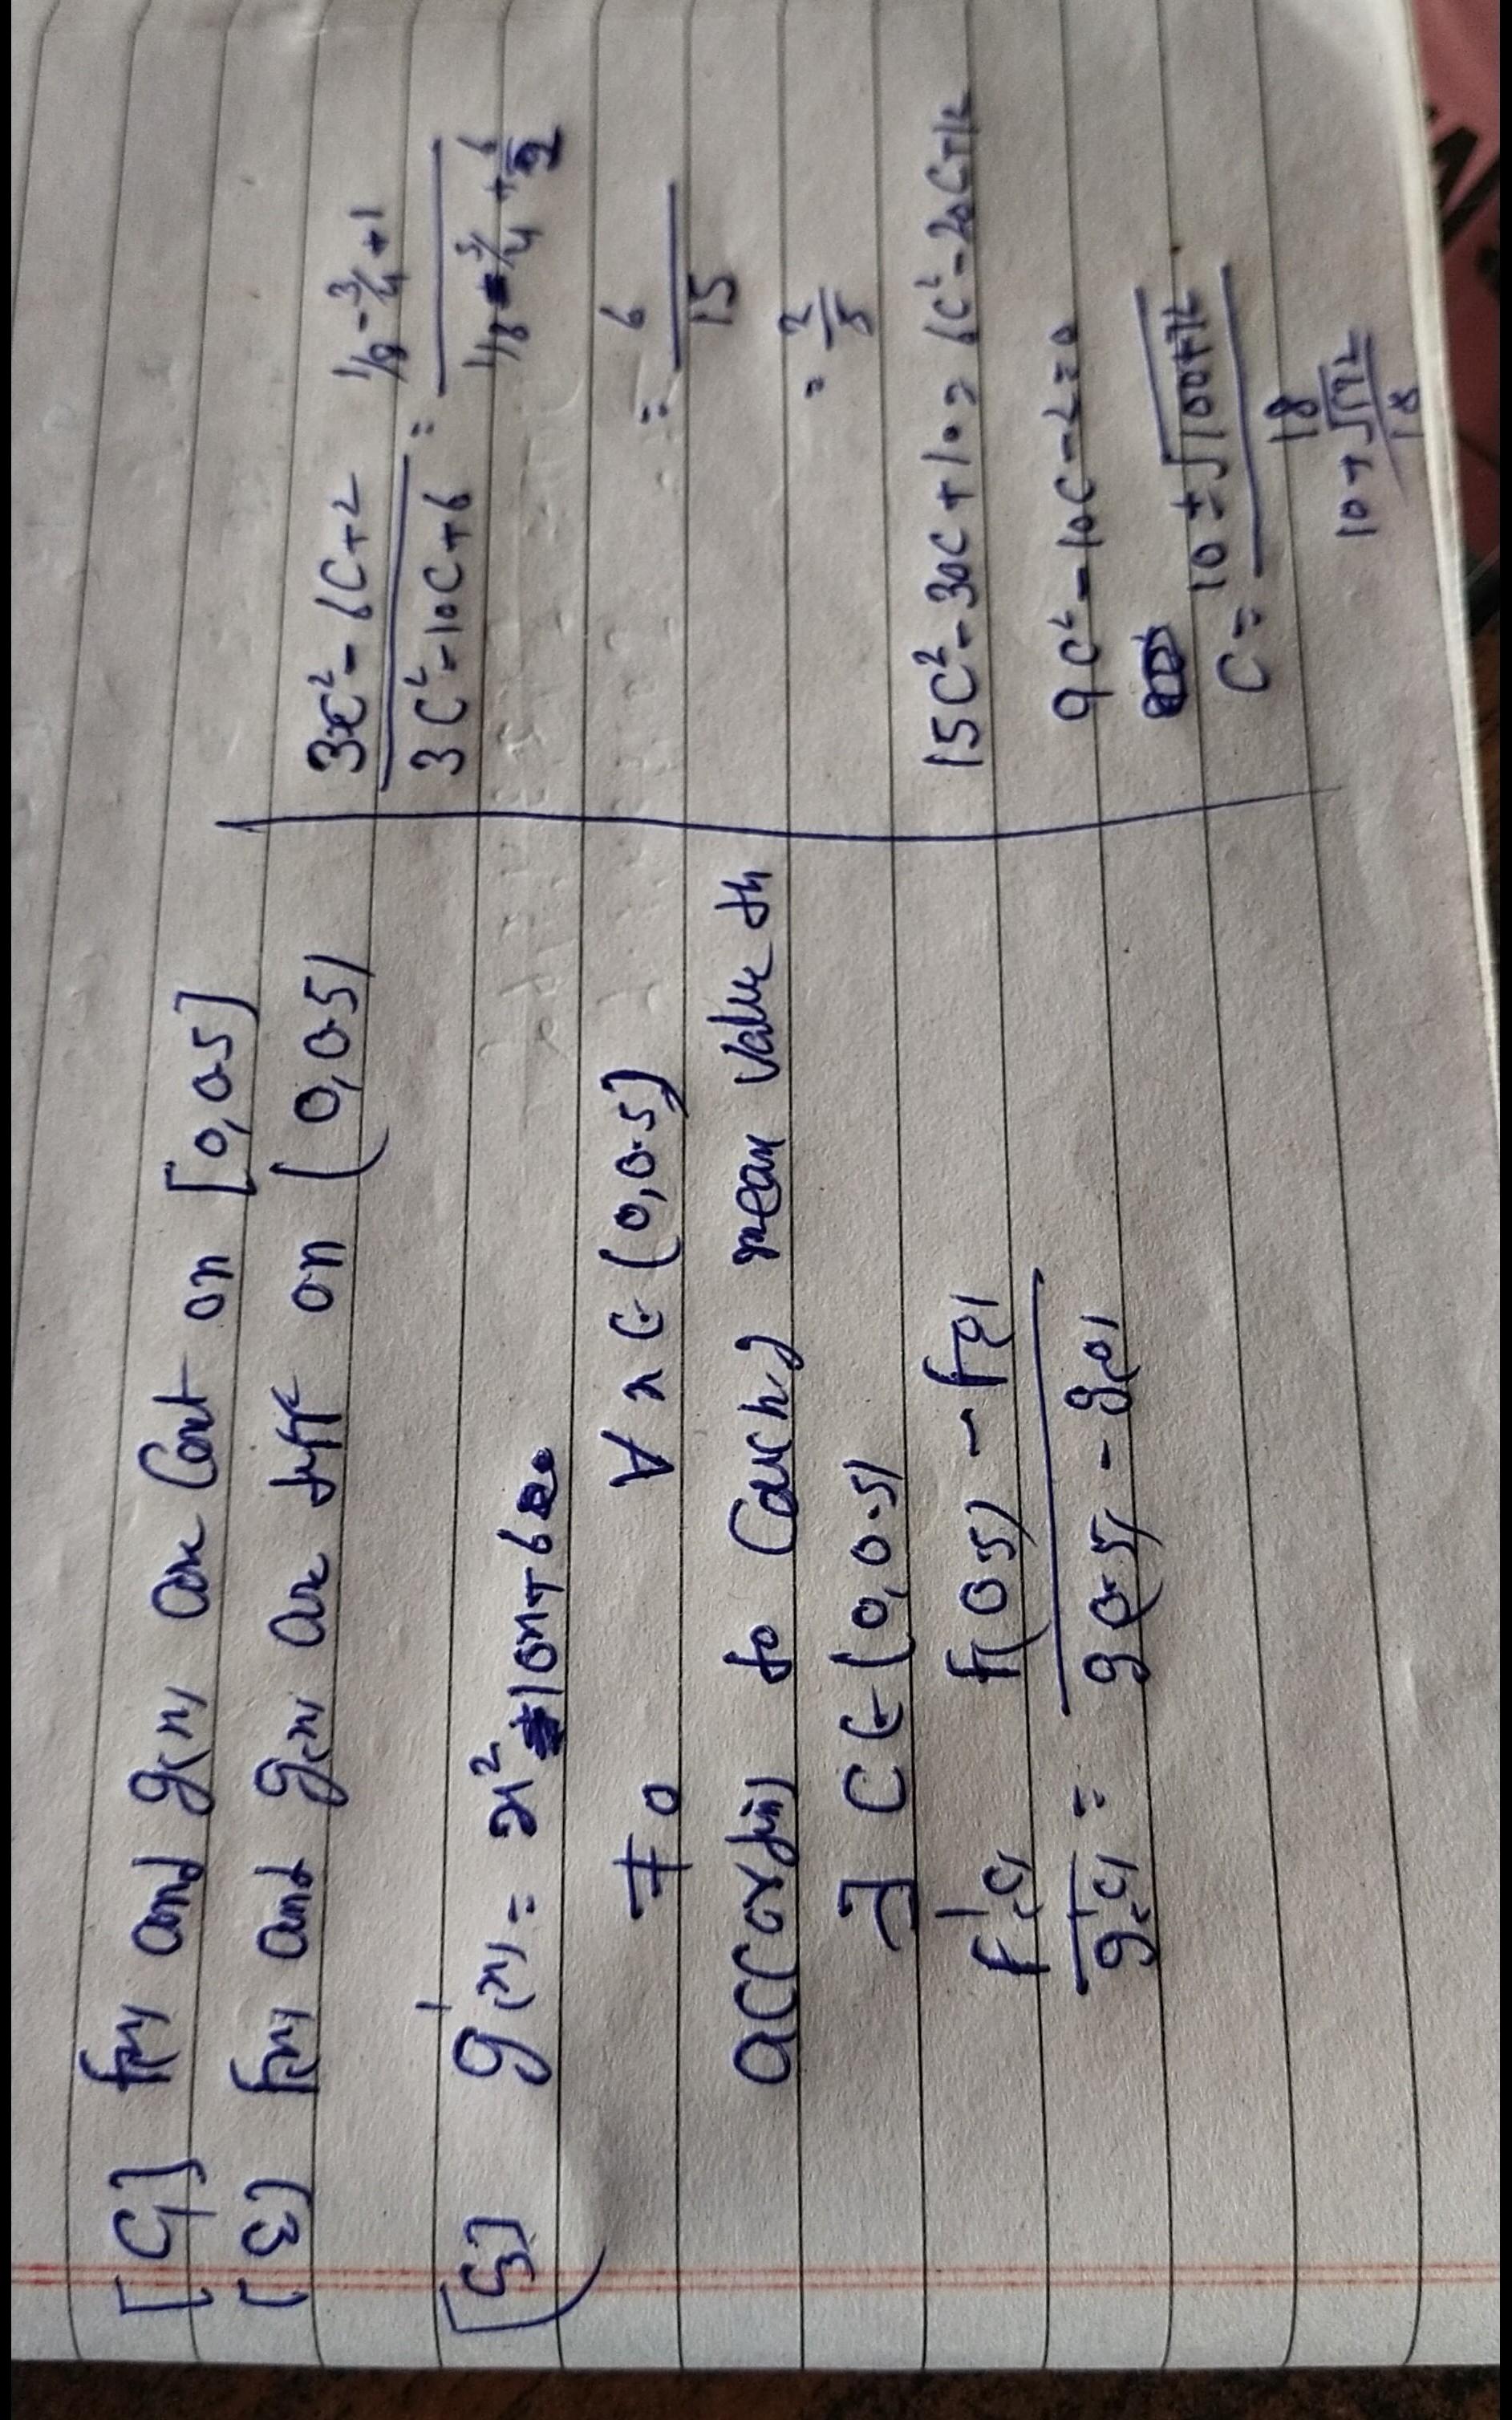 [C1] f(x) and g(x) are Cont on [0, 0.5]
(2) f(x) and g(x) are diff on (0, 0.5)
[3] g'(x) = x² 10x+6
≠ 0 ∀ x ∈ (0, 0.5)
according to Cauchy mean value th
∃ C ∈ (0, 0.5)
f'(c) / g'(c) = f(0.5) - f(0) / g(0.5) - g(0)
3c² - 6C+2 / 3C²-10C+6 = 1/8 - 3/4 + 1 / 1/8 - 5/4 + 6/2
= 6 / 15
= 2/5
15C² - 30C + 10 = 6C² - 20C + 12
9C² - 10C - 2 = 0
C = 10 ± √100+72 / 18
10 + √172 / 18